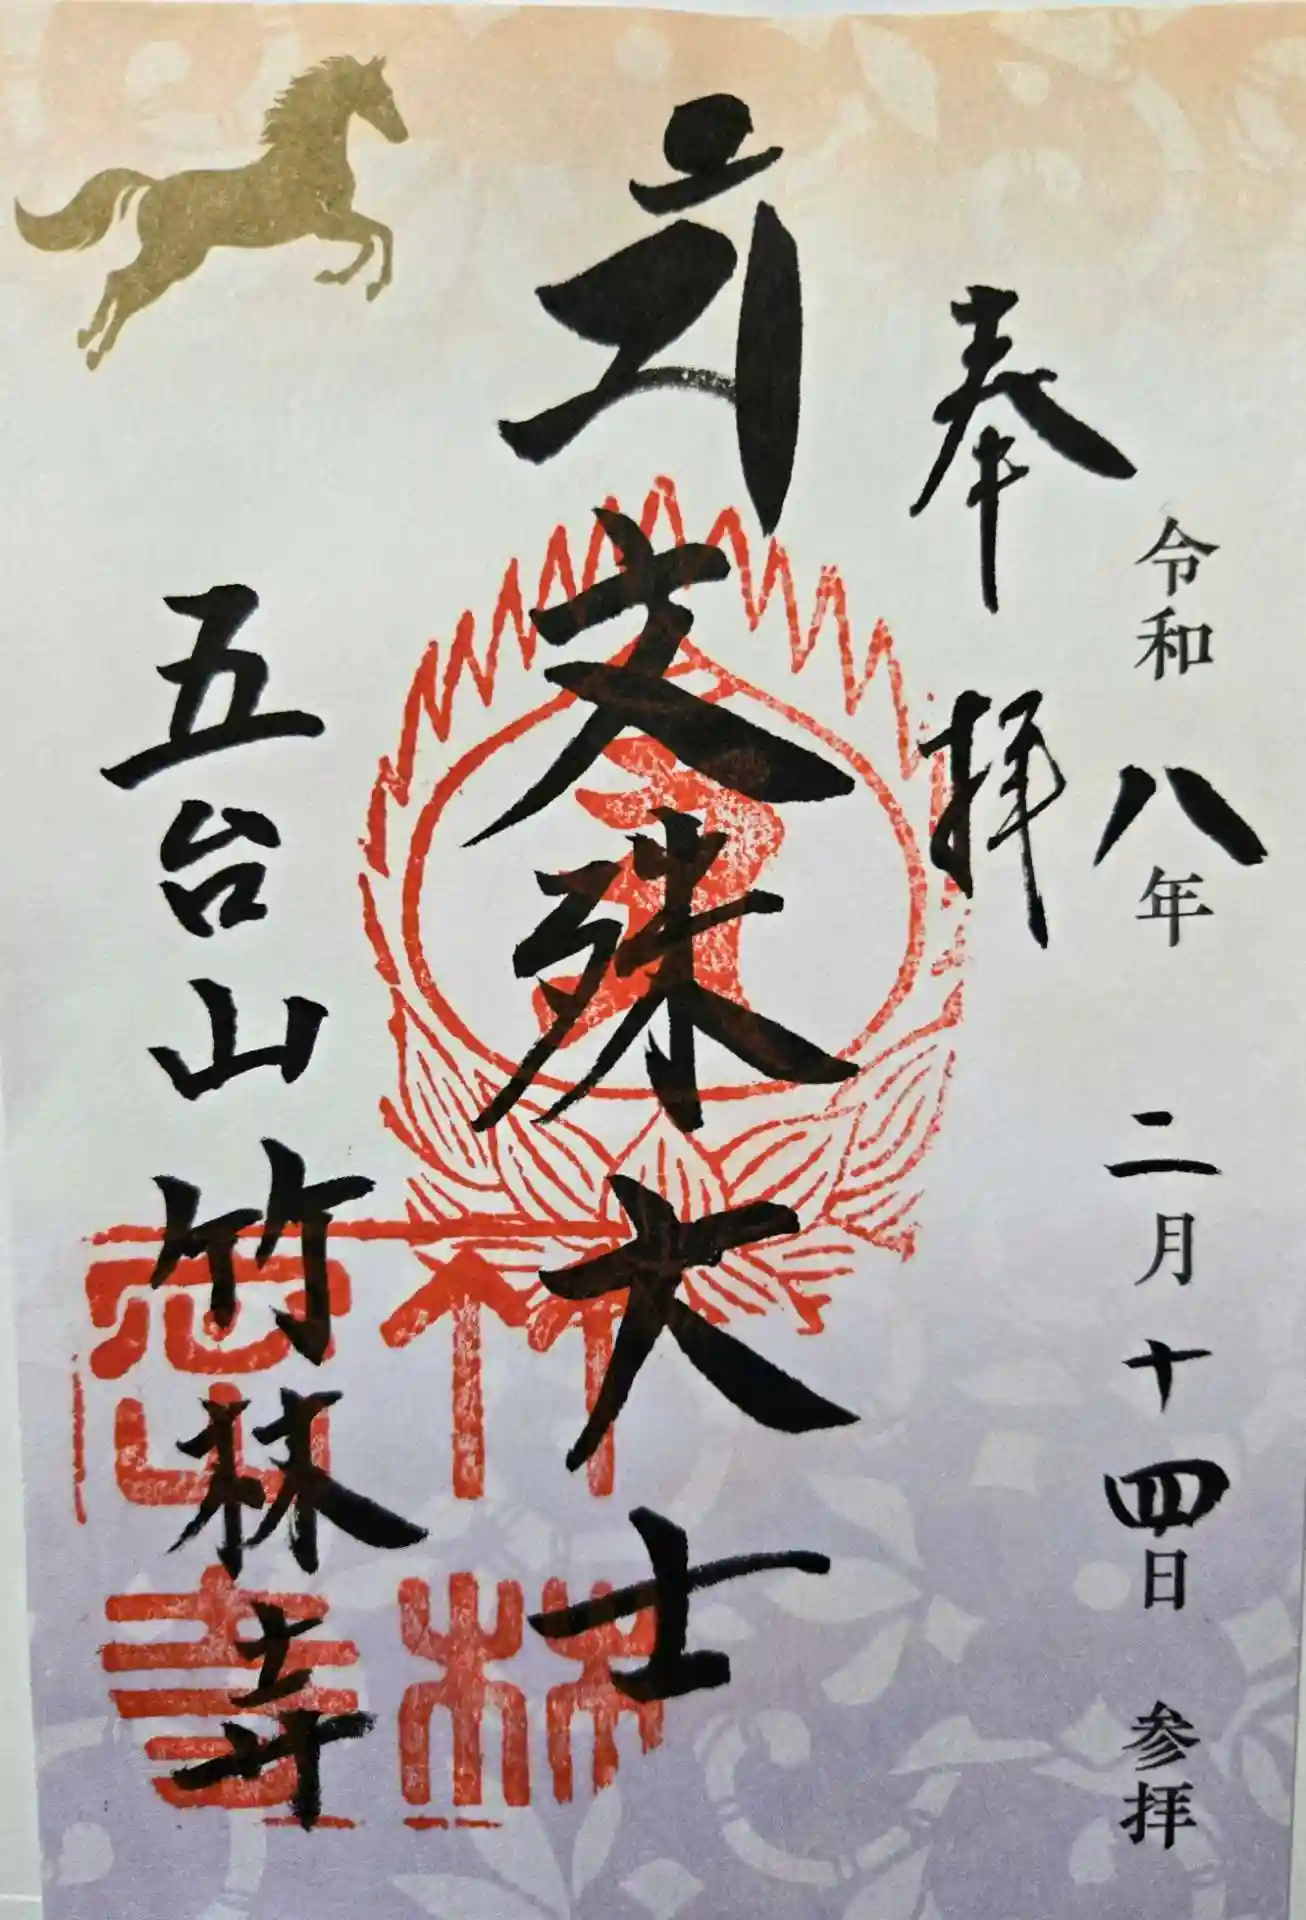 令和八年 二月十四日 参拝
奉拝
文殊大士
五台山竹林寺
竹林
山寺